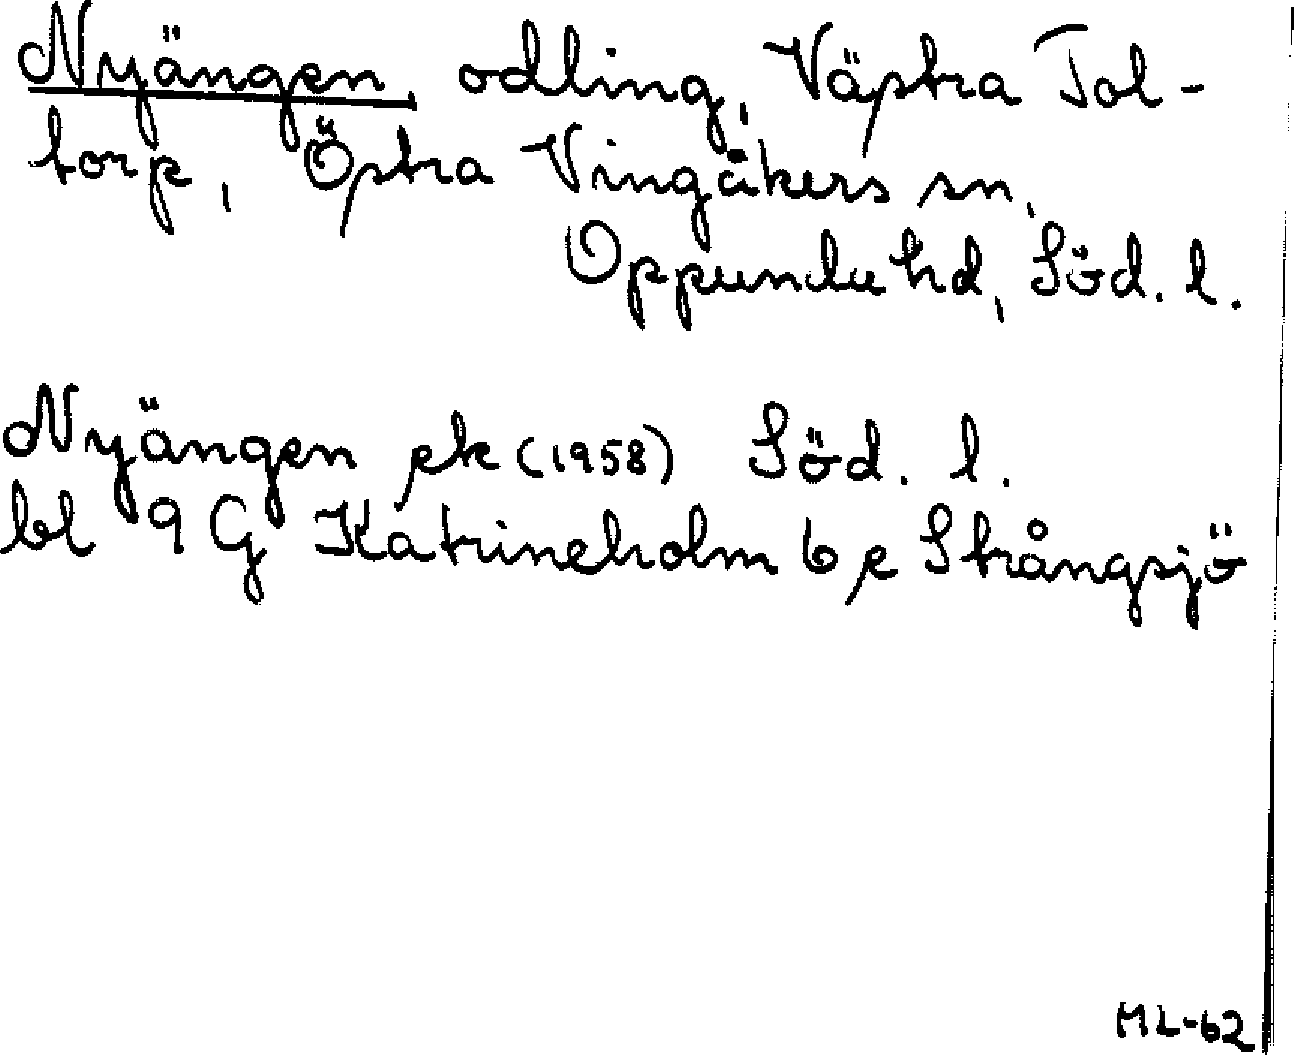 Nyängen odling, Västra Tol-
torp, Östra Vingåkers sn,
Oppunda hd, Söd. l.
Nyängen ek (1958) Söd. l.
bl 9 G Katrineholm 6 e Strångsjö
ML-62